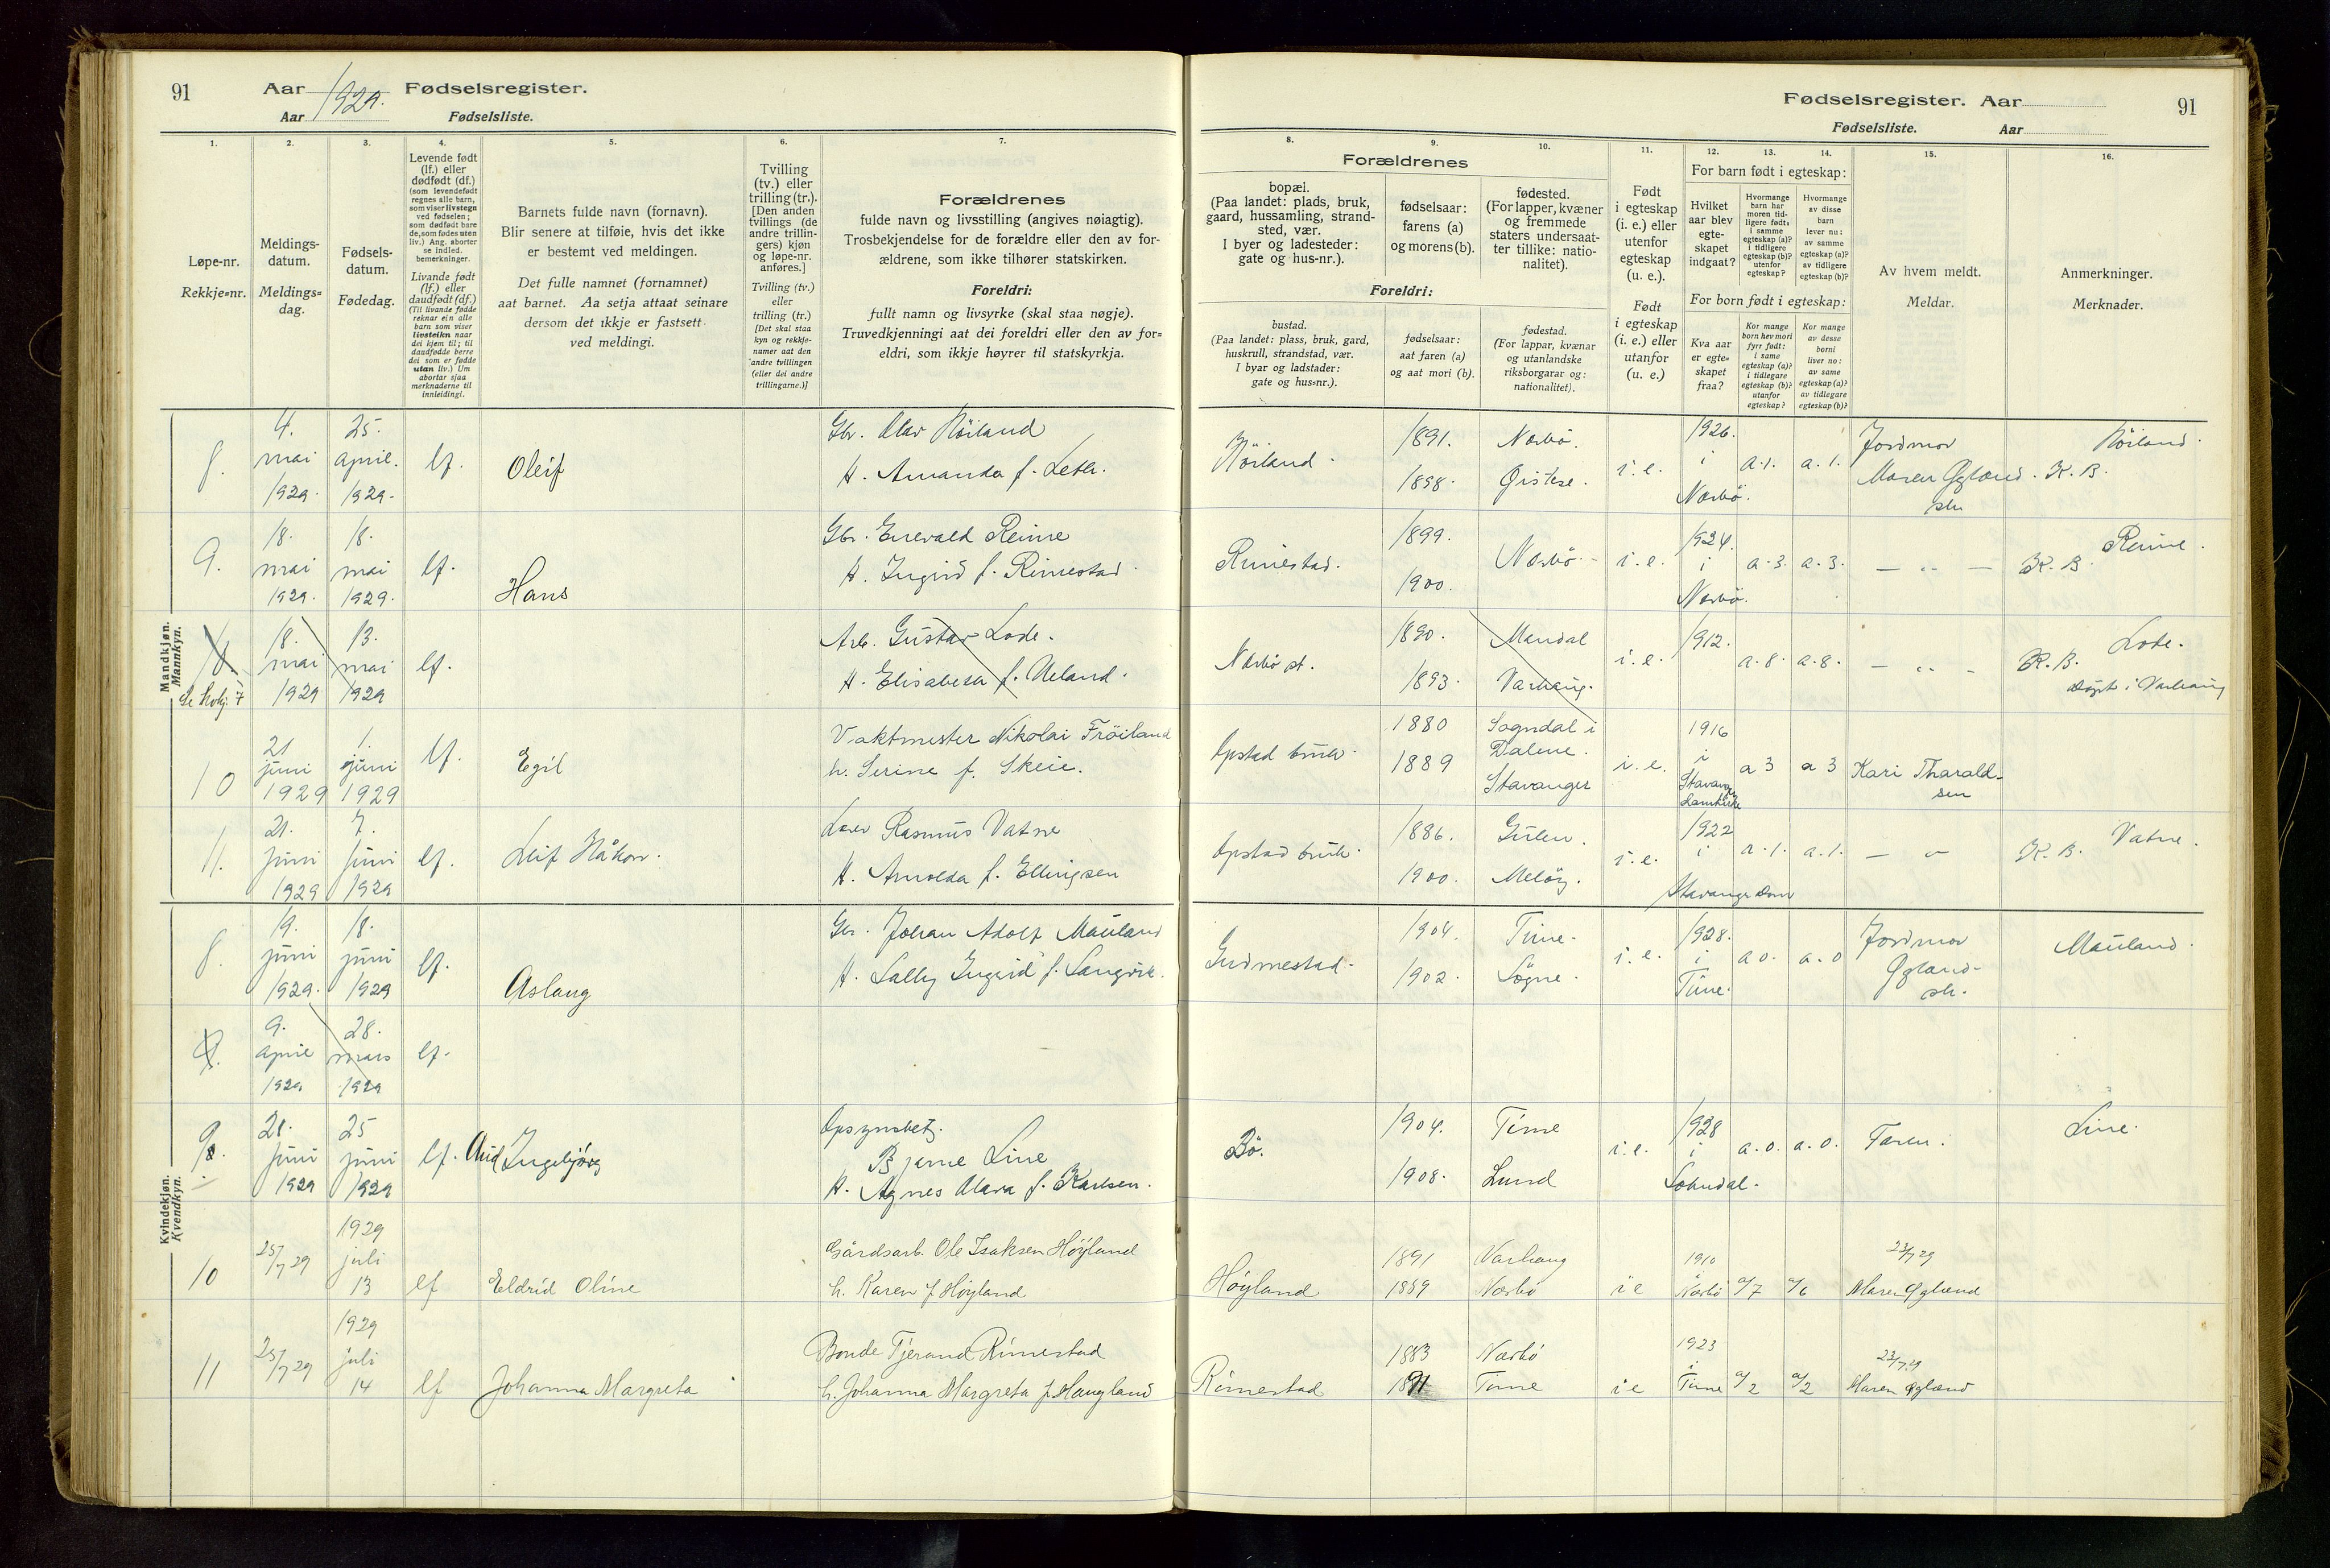 91
Aar 1929.
Fødselsregister.
Aar
Fødselsliste.
1.
2.
3.
4.
5.
6.
7.
Løpe-nr.
Rekkje=nr.
Meldings-
datum.
Meldings=
dag.
Fødsels-
datum.
Fødedag.
Levende født
(lf.) eller
dødfødt (df.)
(som levendefødt
regnes alle barn,
som viser livstegn
ved fødselen;
som dødfødt bare
de, som fødes uten
liv.) Ang. aborter
se indled.
bemerkninger.
Livande født
(lf.) eller
daudfødt (df.)
(Til livande fødde
reknar ein alle
barn som viser
livsteikn naar
dei kjem til; til
daudfødde berre
dei som er fødde
utan liv.) Um
abortar sjaa
merknaderne til
innleidingi.
Barnets fulde navn (fornavn).
Blir senere at tilføie, hvis det ikke
er bestemt ved meldingen.
Det fulle namnet (fornamnet)
aat barnet. Aa setja attaat seinare
dersom det ikkje er fastsett
ved meldingi.
Tvilling
(tv.) eller
trilling (tr.).
[Den anden
tvillings (de
andre trillin-
gers) kjøn
og løpe-nr.
anføres.]
Tvilling (tv.)
eller
trilling (tr.)
[Det skal staa
kyn og rekkje-
numer aat den
andre tvillingen
(eller dei andre
trillingarne.)]
Forældrenes
fulde navn og livsstilling (angives nøiagtig).
Trosbekjendelse for de forældre eller den av for-
ældrene, som ikke tilhører statskirken.
Foreldri:
fullt namn og livsyrke (skal staa nøgje).
Truvedkjenningi aat dei foreldri eller den av for=
eldri, som ikkje høyrer til statskyrkja.
Mandkjøn.
Mannkyn.
8.
4.
mai
1929.
25.
april.
1929.
lf.
Oleif
Gbr. Olav Nöiland
H. Amanda f. Leth.
9.
18.
mai
1929.
18.
mai
1929.
lf.
Hans
Gbr. Enevald Reime
H. Ingrid f. Rimestad.
18.
mai
1929
13.
mai
1929
lf.
Arb. Gustav Lode.
H. Elisabeth f. Ueland.
10
21
juni
1929
1.
juni
1929
lf.
Egil
Vaktmester Nikolai Fröiland
h. Serine f. Skeie.
11.
21.
juni
1929
7.
juni
1929
lf.
Leif Håkon.
Lærer Rasmus Vatne
H. Arnolda f. Ellingsen
Kvindekjøn.
Kvendkyn.
8.
19.
juni
1929.
18.
juni
1929
lf.
Aslaug
Gbr. Johan Adolf Mauland
H. Lally Ingrid f. Langvik.
9.
9.
april
1929
28.
mars
1929
lf.
9.
28.
juni
1929
25
juni
1929
lf.
Aud Ingebjörg
Opsynsbetj.
Bjarne Line
H. Agnes Klara f. Karlsen.
10
25/7 29
1929
juli
13
lf
Eldrid Oline
Gårdsarb. Ole Isaksen Höyland
h. Karen f Höyland
11
25/7 29
1929
juli
14
lf
Johanna Margreta
Bonde Tjerand Rimestad
h. Johanna Margreta f Haugland
Fødselsregister. Aar
91
Fødselsliste.
Aar
8.
9.
10.
11.
12.
13.
14.
15.
16.
Forældrenes
bopæl.
(Paa landet: plads, bruk,
gaard, hussamling, strand-
sted, vær.
I byer og ladesteder:
gate og hus-nr.).
fødselsaar:
farens (a)
og morens (b).
fødested.
(For lapper, kvæner
og fremmede
staters undersaat-
ter tillike: natio-
nalitet).
Foreldri:
bustad.
(Paa landet: plass, bruk, gard,
huskrull, strandstad, vær.
I byar og ladstader:
gate og hus=nr.).
fødselsaar:
aat faren (a)
og aat mori (b).
fødestad.
(For lappar, kvænar
og utanlandske
riksborgarar og:
nationalitet).
Født
i egteskap
(i. e.) eller
utenfor
egteskap
(u. e.).
Født
i egteskap
(i. e.) eller
utanfor
(u. e.)
For barn født i egteskap:
Hvilket
aar blev
egte-
skapet
indgaat?
Hvormange
barn har
moren tid-
ligere født:
i samme
egteskap (a)?
i tidligere
egteskap (b)?
utenfor
egteskap?
Hvormange
av disse
barn
lever nu:
av samme
egteskap (a)?
av tidligere
egteskap (b)?
For born født i egteskap:
Kva aar
er egte-
skapet
fraa?
Kor mange
born hev mori
fyrr født:
i same
egteskap (a)?
i tidlegare
egteskap (b)?
utanfor
egteskap?
Kor mange
av desse
borni
liver no:
av same
egteskap (a)?
av tidlegare
egteskap (b)?
Av hvem meldt.
Meldar.
Anmerkninger.
Merknader.
Nöiland.
1891.
1898.
Nærbö.
Øistese.
i. e.
1926.
i
Nærbö.
a. 1.
a. 1.
Jordmor
Maren Øgland.
Nöiland.
K. B.
Rimestad.
1899.
1900.
Nærbö.
i. e.
1924.
i
Nærbö.
a. 3.
a. 3.
— „ —
Reime.
K. B.
Nærbö st.
1890.
1893.
Mandal
Varhaug.
i. e.
1912.
a. 8.
a. 8.
— „ —
Lode.
K. B.
döpt i Varhaug
Opstad bruk.
1880
1889
Sogndal i
Dalene.
Stavanger
i. e.
1916
i
Stavanger
a 3
a 3
Kari Tharald-
sen
Opstad bruk.
1886.
1900.
Gulen.
Melöy.
i. e.
1922
i
Stavanger dom
a. 1.
a. 1.
— „
Vatne.
K. B.
Gudmestad.
1904.
1902.
Time.
Sögne.
i. e.
1928.
i
Time.
a 0.
a. 0
Jordmor
Øgland
Mauland.
Bö.
1904.
1908.
Time
Lund
i. e.
1928
i
Sokndal.
a. 0.
a. 0.
Faren.
Line.
Höyland
1891
1889
Varhaug
Nærbö
i e
1910
i
Nærbö
a/7
a/6
23/7 29
Maren Øgland
Rimestad
1883
1891
Nærbö
Time
i e
1923
i
Time
a/2
a/2
23/7 29
Maren Øgland